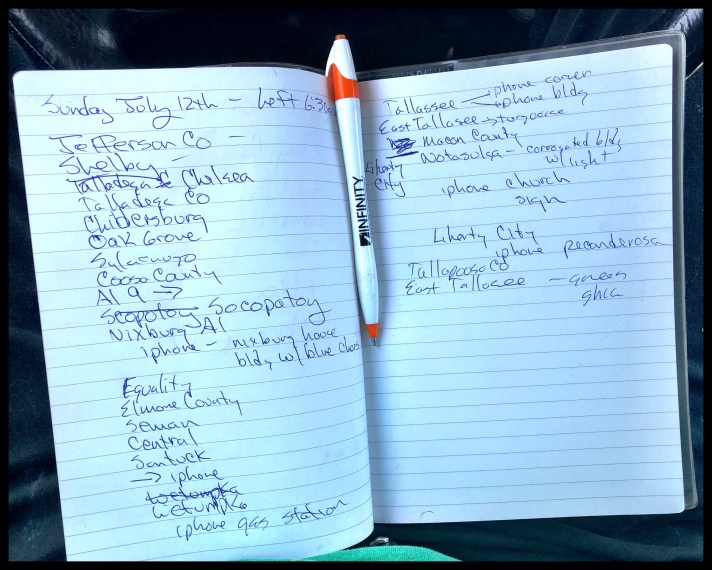 Sunday July 12th - Left 6:30
Jefferson Co -
Shelby -
Talladega Chelsea
Talladega Co
Childersburg
Oak Grove
Sylacauga
Coosa County
Al 9 →
Scopotoy Socopatoy
Nixburg Al
iphone - nixburg house
bldg w/ blue
Equality
Elmore County
Seman
Central
Santuck
→ iphone
Wetumpka
Wetumpka
iphone gas station
INFINITY
Tallassee - iphone corner
iphone bldg
East Tallasee → turquoise
Macon County
Notasulga - corrogated bldg
w/ light
Liberty
City
iphone church
sign
Liberty City
iphone peconderosa
Tallapoosa Co
East Tallasee - green
ghia